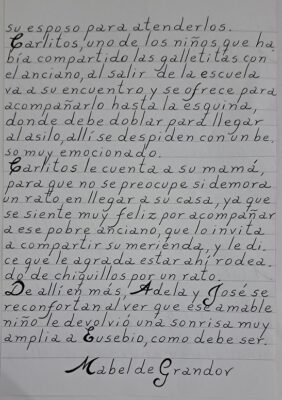 su esposo para atenderlos.
Carlitos, uno de los niños que ha
bía compartido las galletitas con
el anciano, al salir de la escuela
va a su encuentro y se ofrece para
acompañarlo hasta la esquina,
donde debe doblar para llegar
al asilo, allí se despiden con un be_
so muy emocionado.
Carlitos le cuenta a su mamá,
para que no se preocupe si demora
un rato en llegar a su casa, ya que
se siente muy feliz por acompañar
a ese pobre anciano, que lo invita
a compartir su merienda, y le di_
ce que le agrada estar ahí rodea_
do de chiquillos por un rato.
De allí en más, Adela y José se
reconfortan al ver que ese amable
niño le devolvió una sonrisa muy
amplia a Eusebio, como debe ser.
Mabel de Grandov